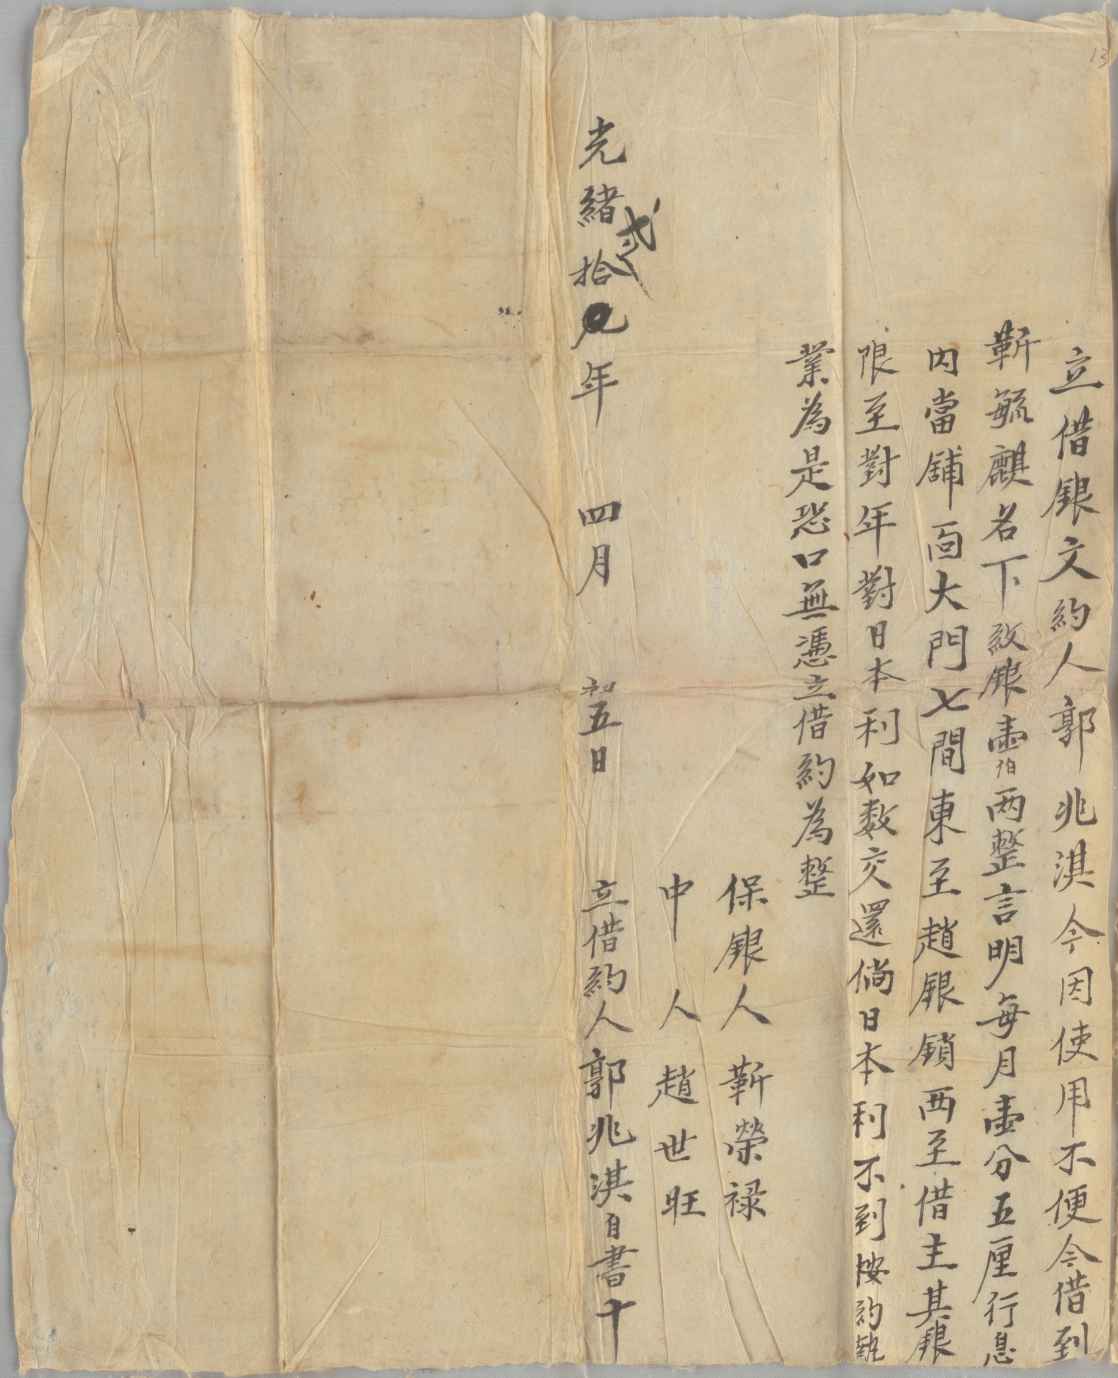 立借銀文約人郭兆淇今因使用不便今借到
靳毓麒名下紋銀壹伯两整言明每月壹分五厘行息
内當舖面大門七間東至趙銀鎖西至借主其銀
限至對年對日本利如数交還倘日本利不到按約執
業為是恐口無憑立借約為整
保銀人靳榮禄
中人趙世旺
光緒拾貳年四月初五日立借約人郭兆淇自書十
13